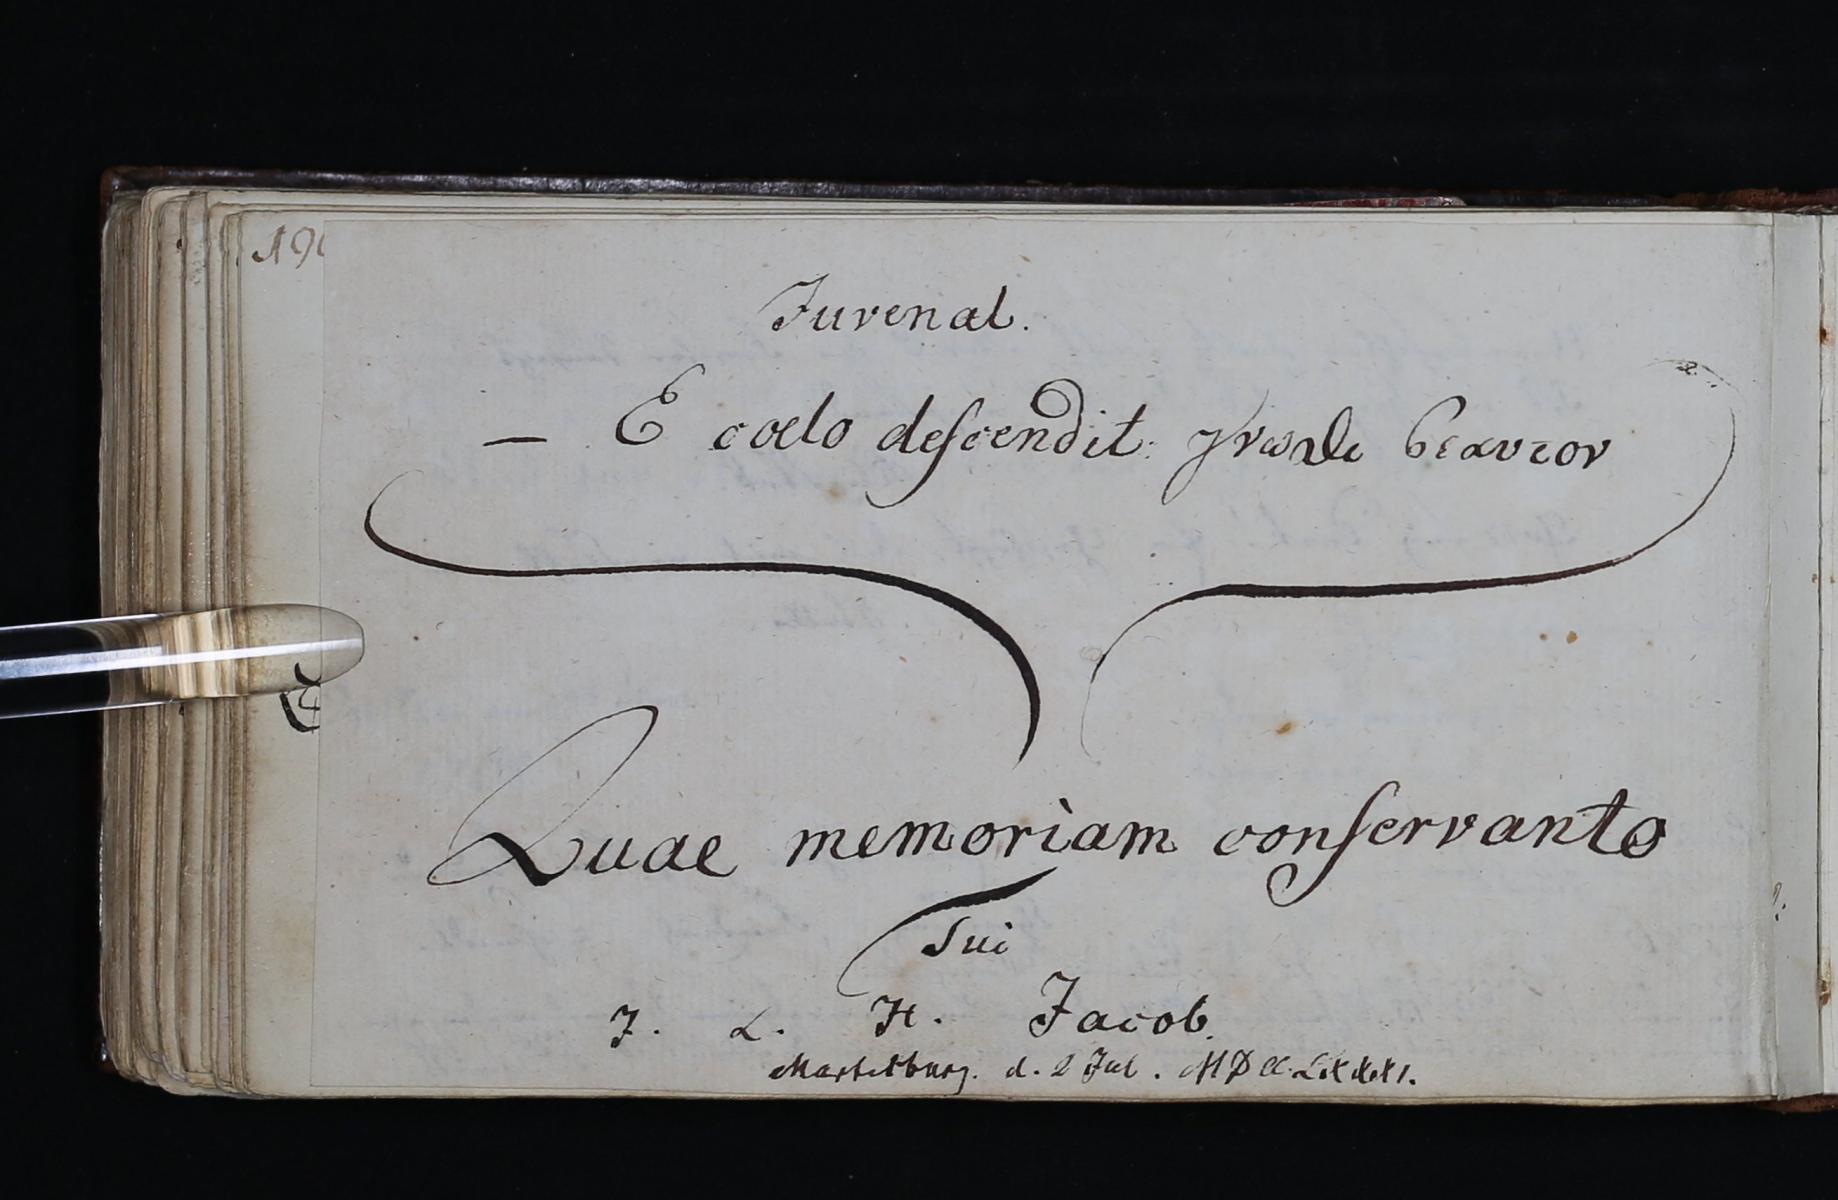 Juvenal.
— E coelo descendit: γνωθι σεαυτον
Quae memoriam conservanto
Sui
J. L. H. Jacob.
d. 2 Jul. MDCCLXXXXI.